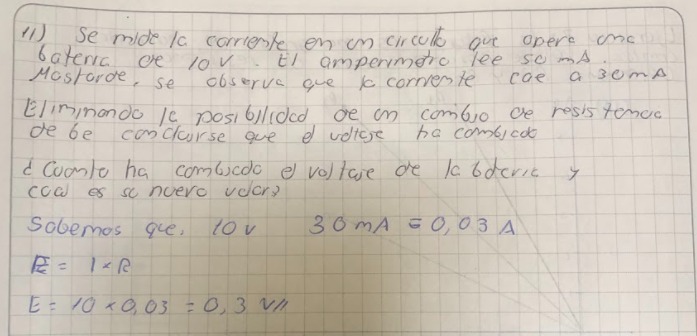 11) Se mide la corriente en un circuito que opera una
bateria de 10 V. El amperimetro lee 50 mA.
Mastarde, se observa que la corriente cae a 30 mA
Eliminando la posibilidad de un cambio de resistencia
debe concluirse que el voltaje ha cambiado
¿Cuanto ha cambiado el voltaje de la bateria y
cual es su nuevo valor?
Sabemos que. 10 v 30 mA = 0,03 A
E = I × R
E = 10 × 0,03 = 0,3 V//